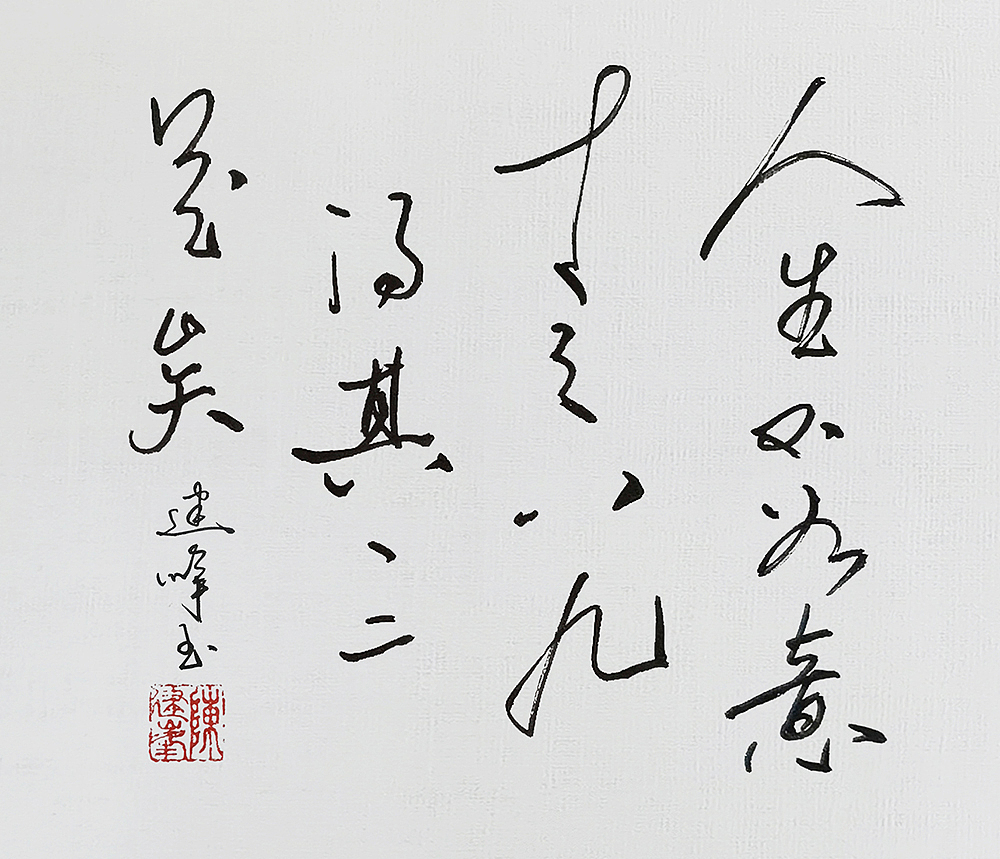 人生不如意
十之八九
得其一二
足矣
建峰
陳建峰